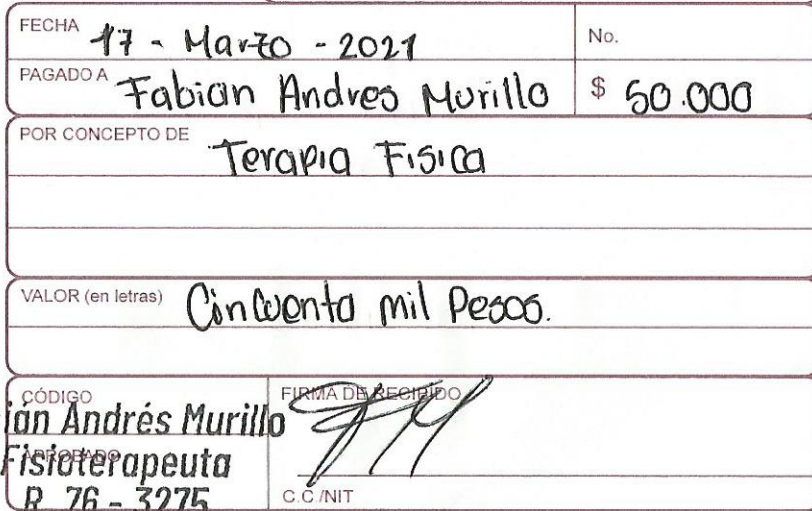 FECHA 17 - Marzo - 2021 No.
PAGADO A Fabian Andres Murillo $ 50.000
POR CONCEPTO DE Terapia Fisica
VALOR (en letras) Cincuenta mil Pesos.
CÓDIGO FIRMA DE RECIBIDO
ián Andrés Murillo
APROBADO
Fisioterapeuta
R 76 - 3275 C.C./NIT